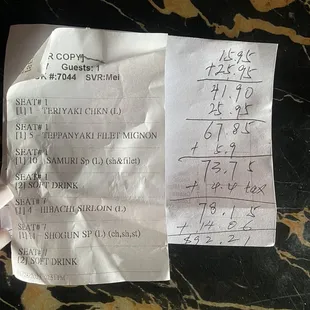 R COPY
Guests: 1
K #:7044 SVR:Mel
SEAT# 1
[1] 1 - TERIYAKI CHKN (L)
SEAT# 1
[1] 5 - TEPPANYAKI FILET MIGNON
[1] 10 - SAMURI Sp (L) (sh&filet)
SEAT# 1
[2] SOFT DRINK
SEAT#
[1] 4 - HIBACHI SIRLOIN (L)
SEAT# 7
SHOGUN SP (L) (ch,sh,st)
SEAT#
[2] SOFT DRINK
15.95
+25.95
41.90
25.95
67.85
+ 5.9
73.75
+ 4.4 tax
78.15
+ 14.06
$92.21